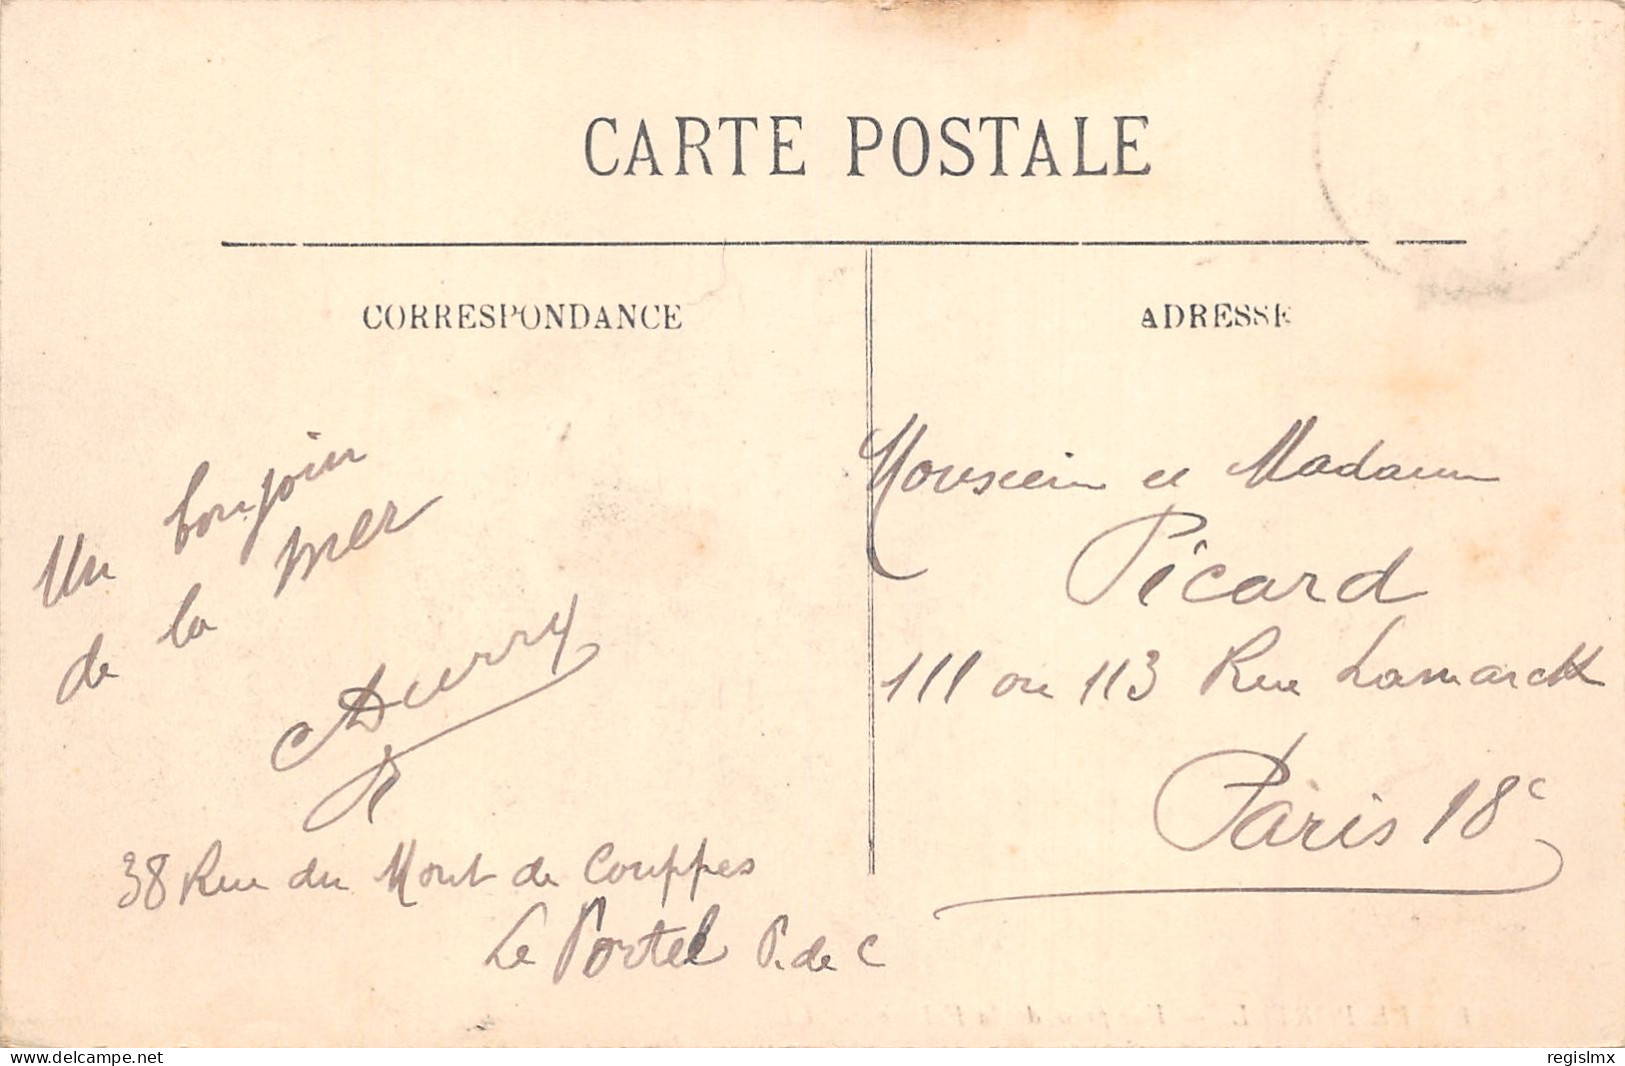 CARTE POSTALE
CORRESPONDANCE
Un bonjour
de la mer
38 Rue du Mont de Couppes
Le Portel P. de C
ADRESSE
Monsieur et Madame
Picard
111 ou 113 Rue Lamarck
Paris 18e
www.delcampe.net
regislmx